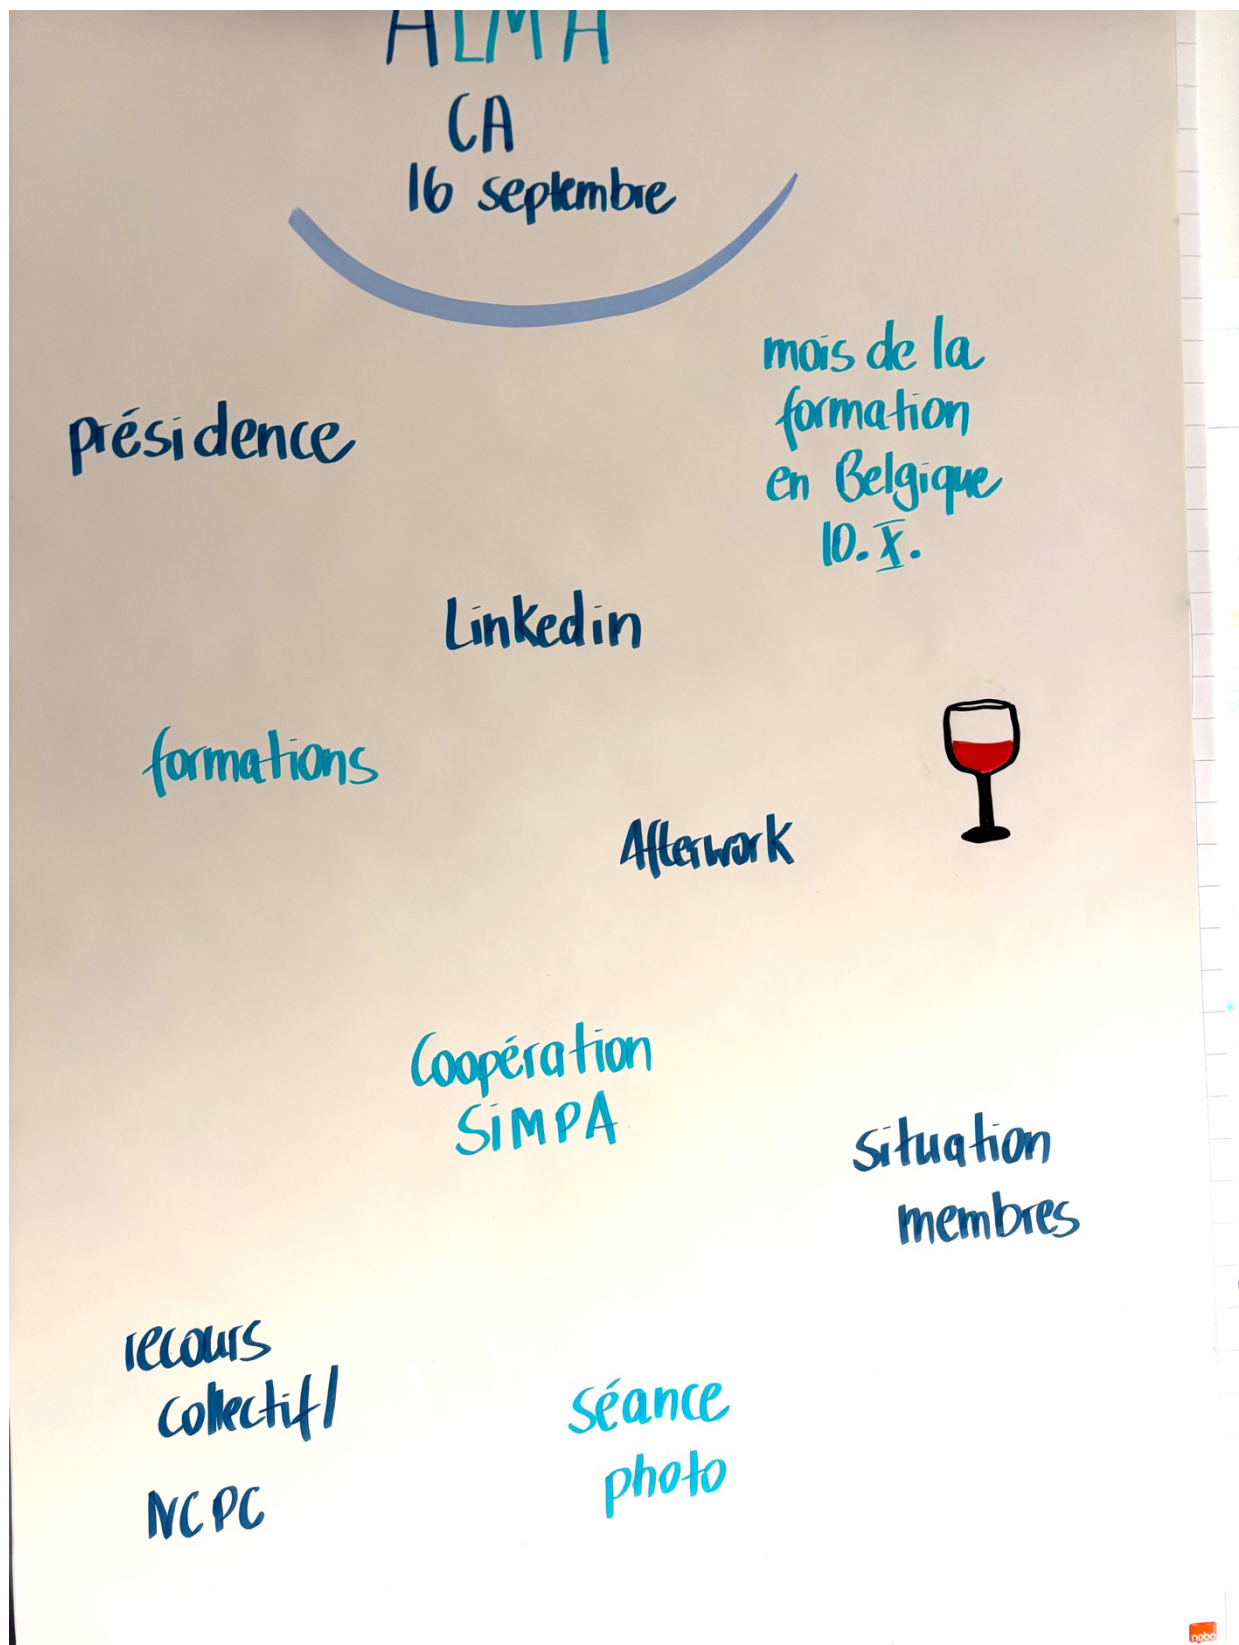 ALMA
CA
16 septembre
mois de la
formation
en Belgique
10.X.
présidence
Linkedin
formations
Afterwork
Coopération
SIMPA
situation
membres
recours
collectif/
NCPC
séance
photo
nobo